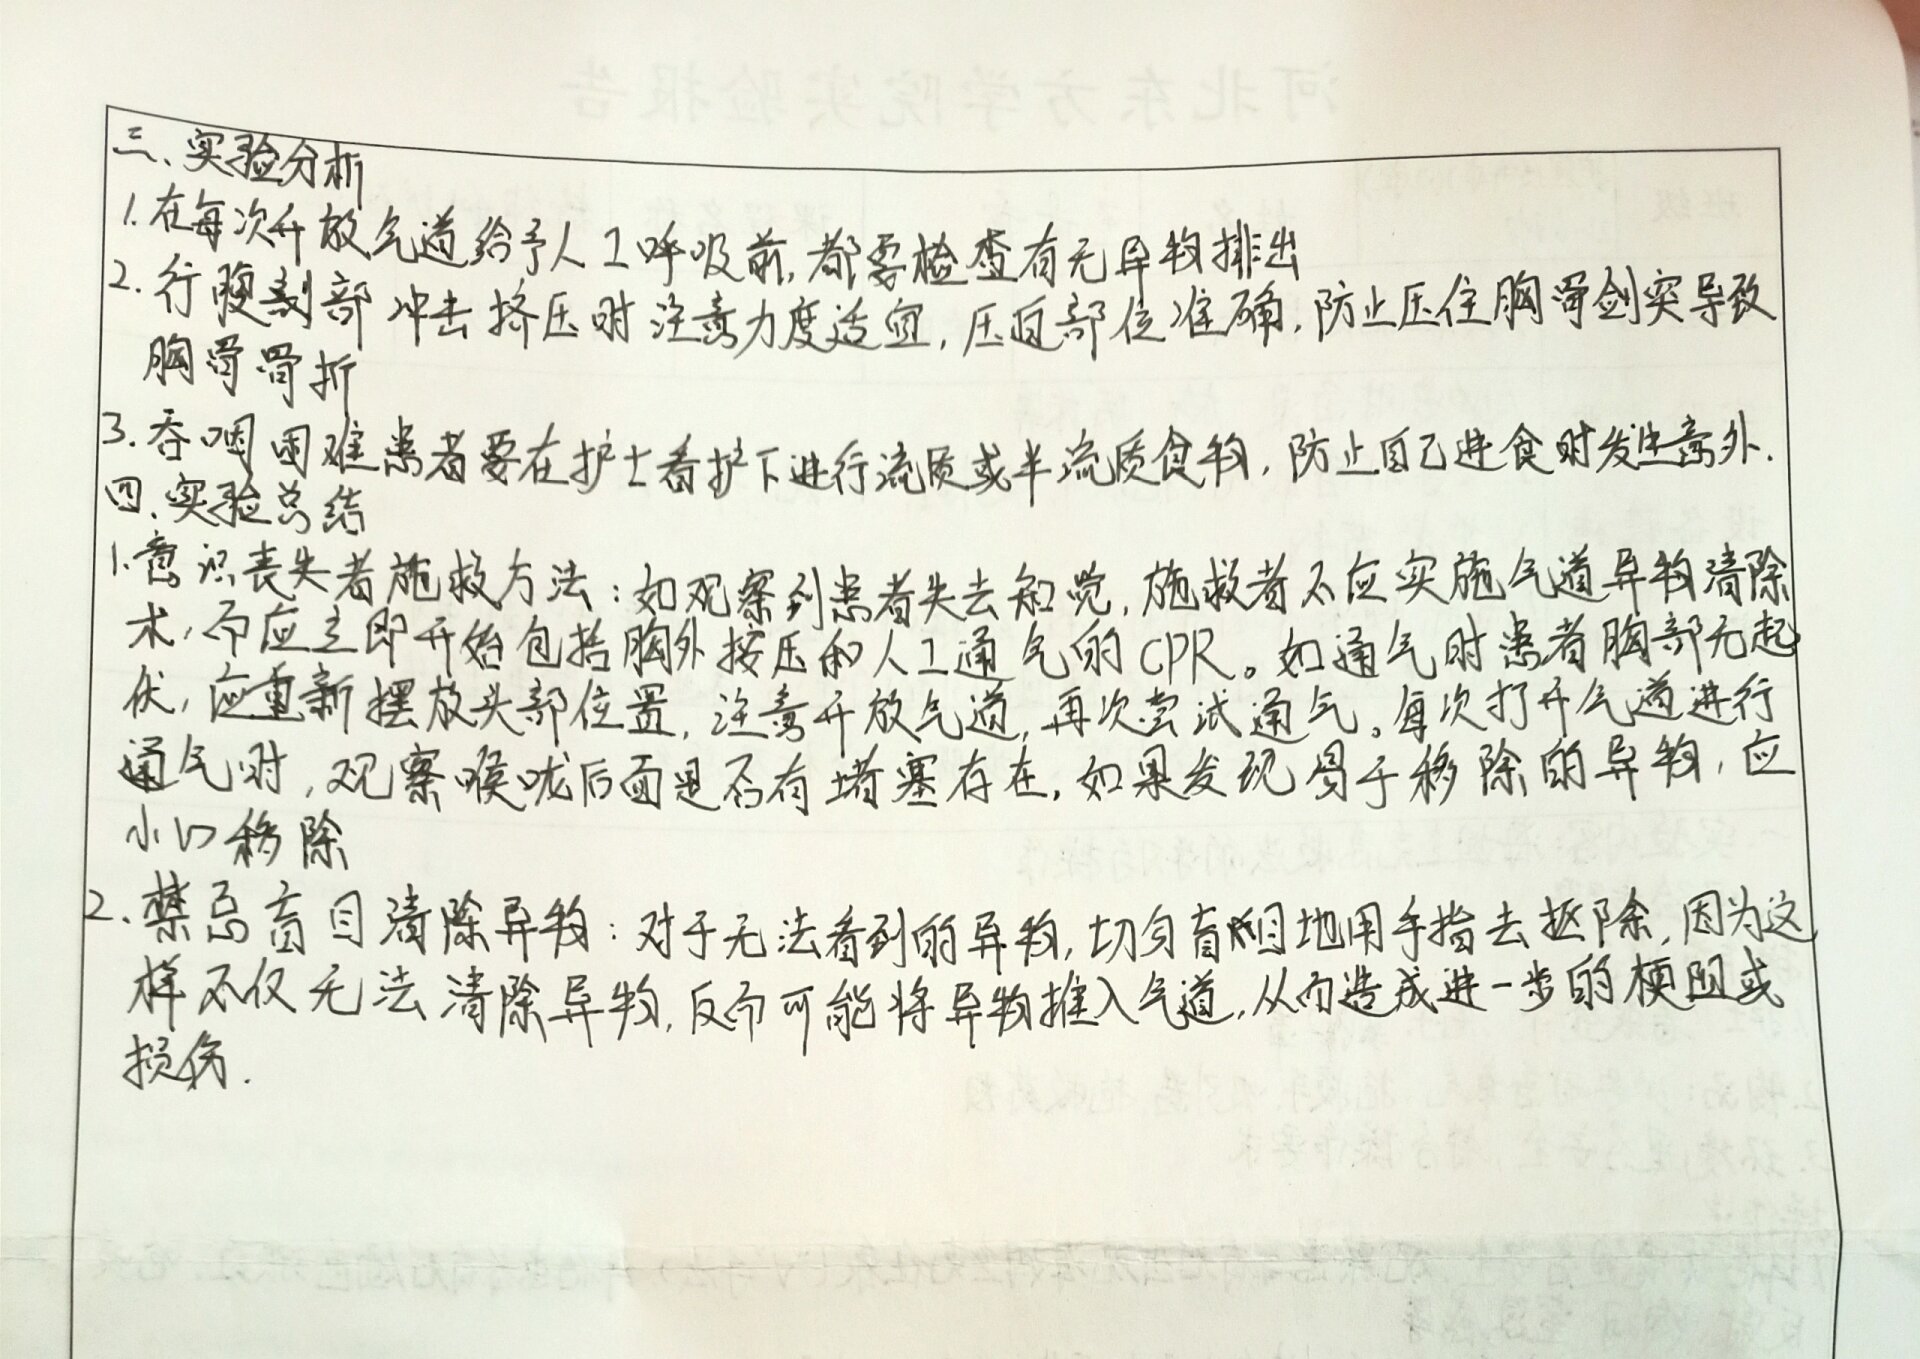 三、实验分析
1.在每次开放气道给予人工呼吸前,都要检查有无异物排出
2.行腹部冲击挤压时注意力度适宜,压迫部位准确,防止压住胸骨剑突导致
胸骨骨折
3.吞咽困难患者要在护士看护下进行流质或半流质食物,防止自己进食时发生意外.
四、实验总结
1.意识丧失者施救方法:如观察到患者失去知觉,施救者不应实施气道异物清除
术,而应立即开始包括胸外按压和人工通气的CPR。如通气时患者胸部无起
伏,应重新摆放头部位置,注意开放气道,再次尝试通气。每次打开气道进行
通气时,观察喉咙后面是否有堵塞存在,如果发现易于移除的异物,应
小心移除
2.禁忌盲目清除异物:对于无法看到的异物,切勿盲目地用手指去抠除,因为这
样不仅无法清除异物,反而可能将异物推入气道,从而造成进一步的梗阻或
损伤.
河北东方学院实验报告
班级